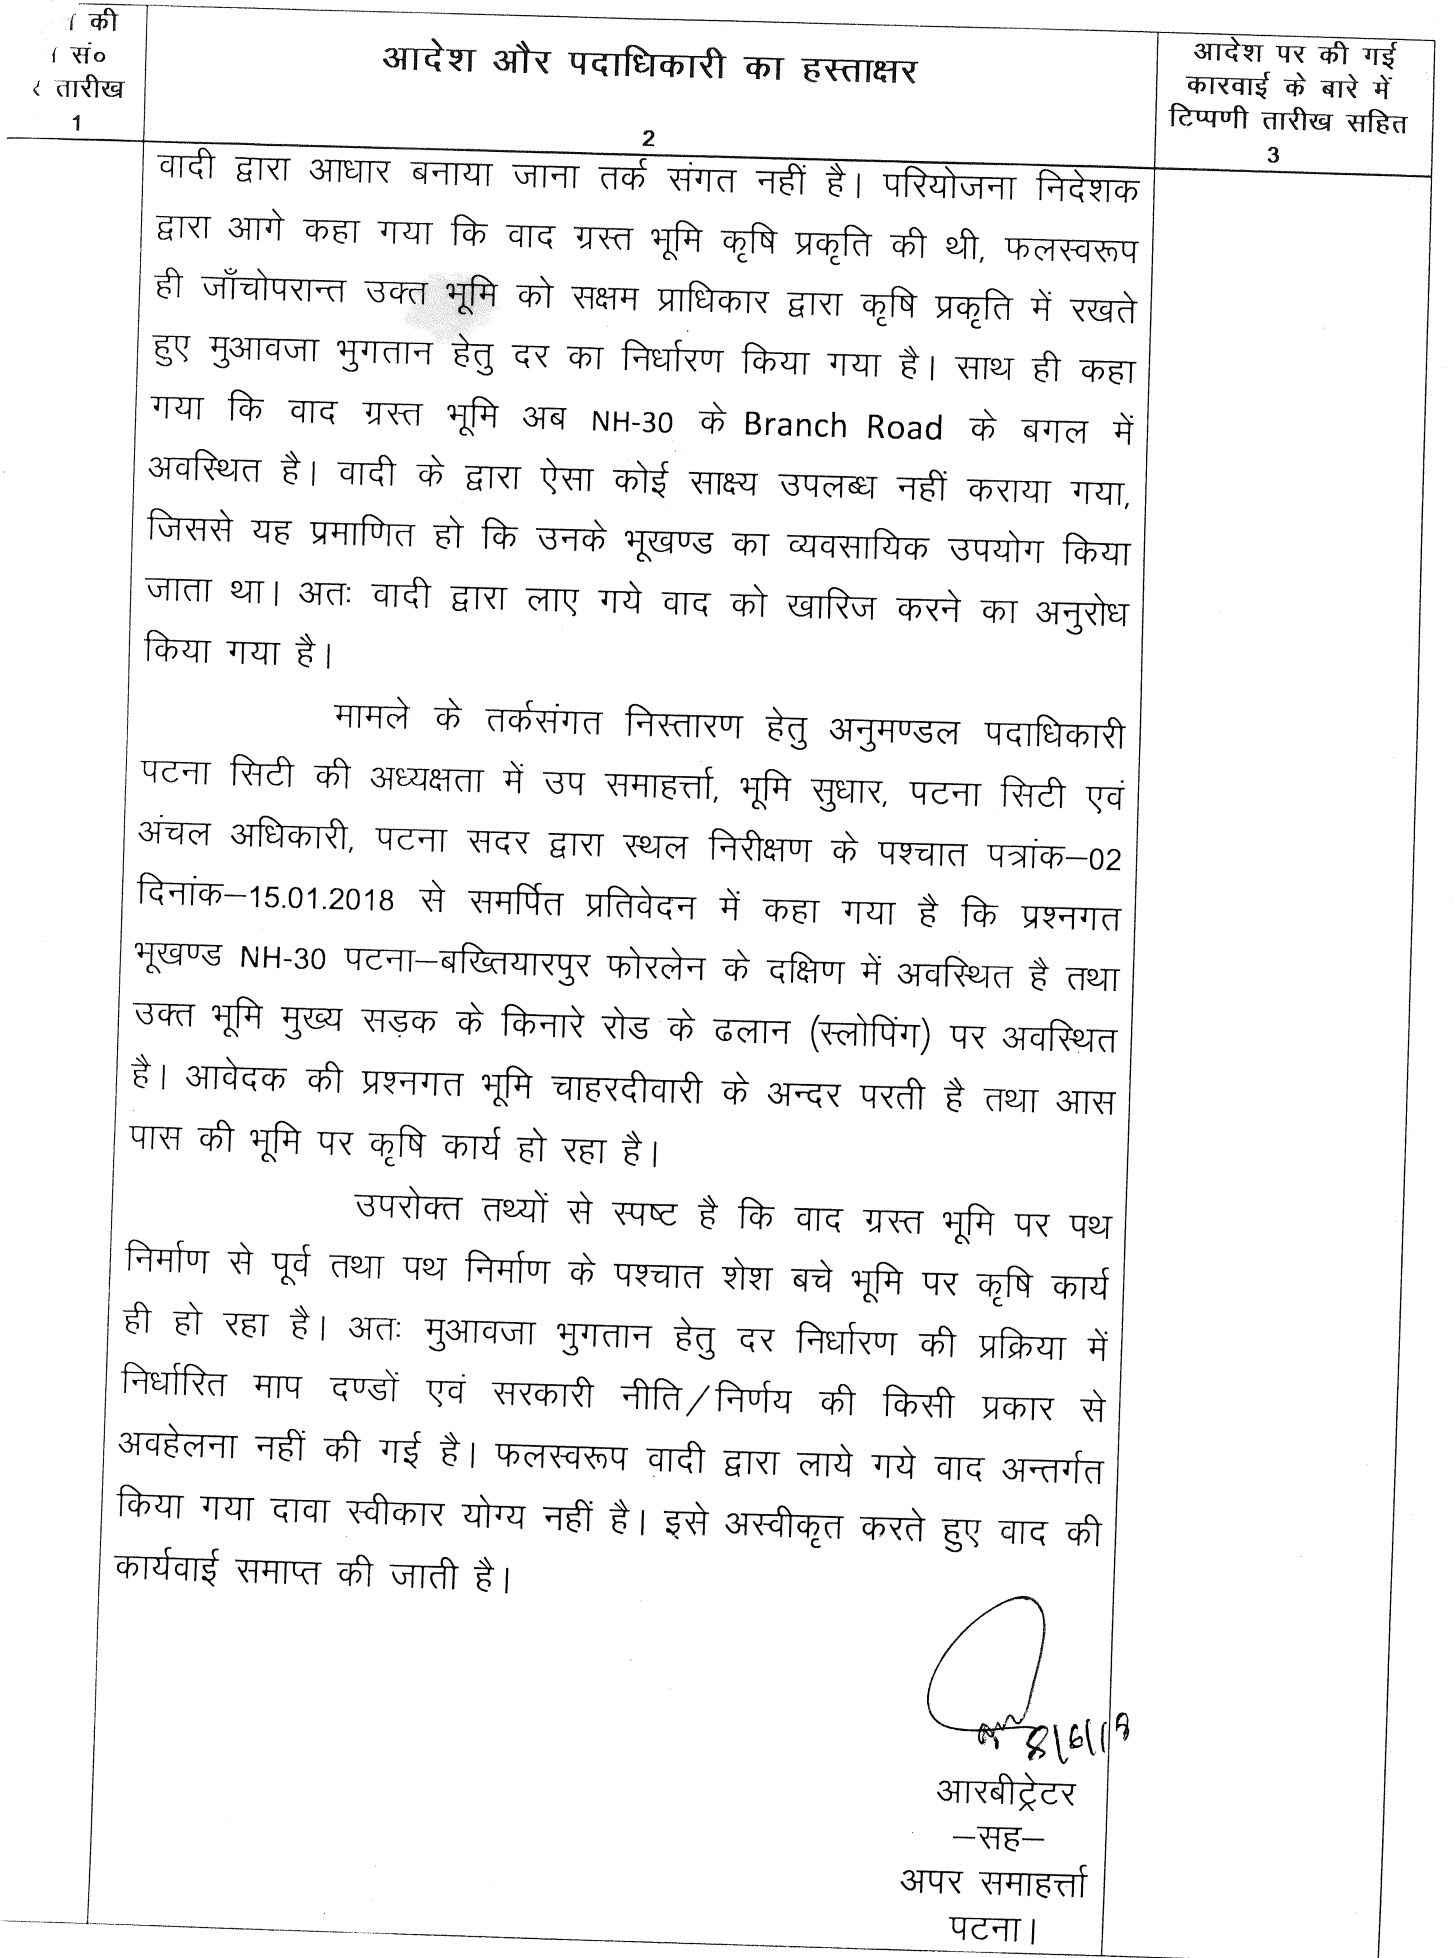 की
सं०
तारीख
1
आदेश और पदाधिकारी का हस्ताक्षर
2
आदेश पर की गई
कारवाई के बारे में
टिप्पणी तारीख सहित
3
वादी द्वारा आधार बनाया जाना तर्क संगत नहीं है। परियोजना निदेशक
द्वारा आगे कहा गया कि वाद ग्रस्त भूमि कृषि प्रकृति की थी, फलस्वरूप
ही जाँचोपरान्त उक्त भूमि को सक्षम प्राधिकार द्वारा कृषि प्रकृति में रखते
हुए मुआवजा भुगतान हेतु दर का निर्धारण किया गया है। साथ ही कहा
गया कि वाद ग्रस्त भूमि अब NH-30 के Branch Road के बगल में
अवस्थित है। वादी के द्वारा ऐसा कोई साक्ष्य उपलब्ध नहीं कराया गया,
जिससे यह प्रमाणित हो कि उनके भूखण्ड का व्यवसायिक उपयोग किया
जाता था। अतः वादी द्वारा लाए गये वाद को खारिज करने का अनुरोध
किया गया है।
मामले के तर्कसंगत निस्तारण हेतु अनुमण्डल पदाधिकारी
पटना सिटी की अध्यक्षता में उप समाहर्त्ता, भूमि सुधार, पटना सिटी एवं
अंचल अधिकारी, पटना सदर द्वारा स्थल निरीक्षण के पश्चात पत्रांक–02
दिनांक–15.01.2018 से समर्पित प्रतिवेदन में कहा गया है कि प्रश्नगत
भूखण्ड NH-30 पटना–बख्तियारपुर फोरलेन के दक्षिण में अवस्थित है तथा
उक्त भूमि मुख्य सड़क के किनारे रोड के ढलान (स्लोपिंग) पर अवस्थित
है। आवेदक की प्रश्नगत भूमि चाहरदीवारी के अन्दर परती है तथा आस
पास की भूमि पर कृषि कार्य हो रहा है।
उपरोक्त तथ्यों से स्पष्ट है कि वाद ग्रस्त भूमि पर पथ
निर्माण से पूर्व तथा पथ निर्माण के पश्चात शेश बचे भूमि पर कृषि कार्य
ही हो रहा है। अतः मुआवजा भुगतान हेतु दर निर्धारण की प्रक्रिया में
निर्धारित माप दण्डों एवं सरकारी नीति/निर्णय की किसी प्रकार से
अवहेलना नहीं की गई है। फलस्वरूप वादी द्वारा लाये गये वाद अन्तर्गत
किया गया दावा स्वीकार योग्य नहीं है। इसे अस्वीकृत करते हुए वाद की
कार्यवाई समाप्त की जाती है।
8/6/18
आरबीट्रेटर
–सह–
अपर समाहर्त्ता
पटना।